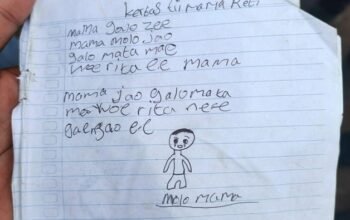 Kertas ii mama Reti
mama galo zee
mama molo jao
galo mata mae
woe rita ee mama
mama jao galo mata
mae woe rita nese
gaengao ee
molo mama